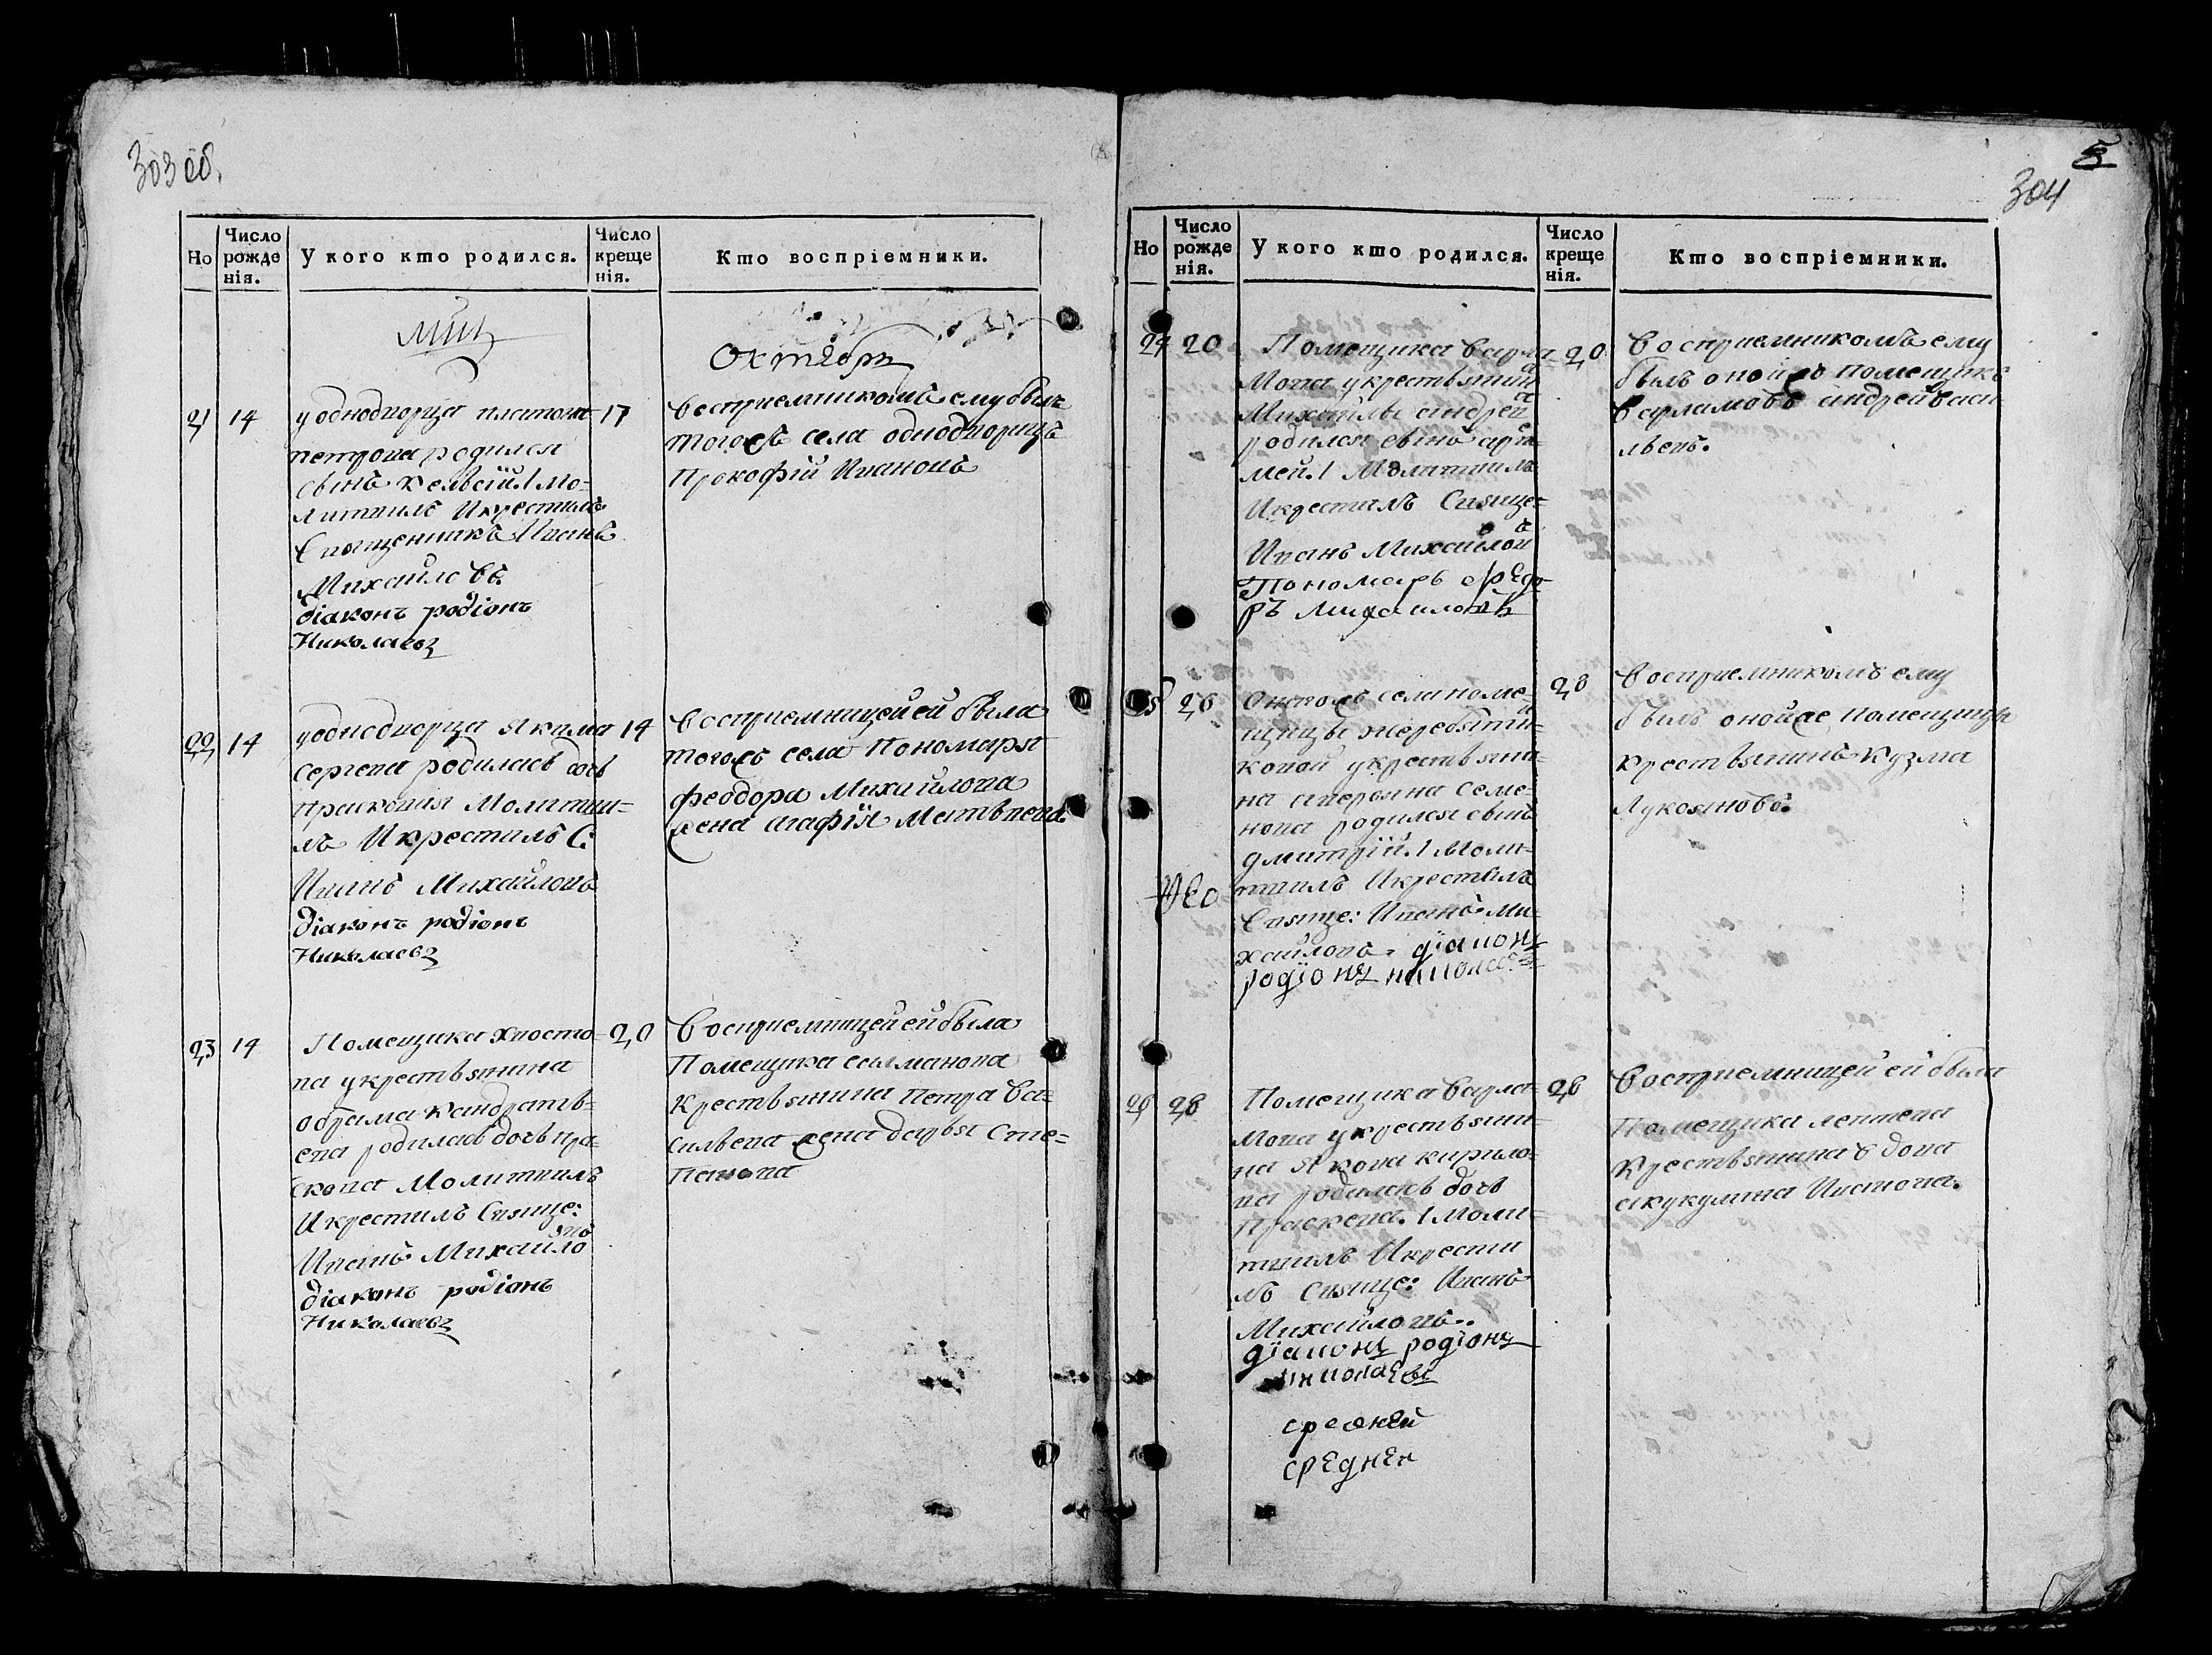 303 об.
Но
Число рожде нія.
У кого кто родился.
Число креще нія.
Кто воспріемники.
Октябрь
21 14 17
у однодворца платона
петрова родился
сынъ
литвилъ Икрестилъ
Священникъ Иванъ
Михаиловъ
діаконъ родіонъ
Николаевъ
восприемникомъ ему былъ
тогожъ села однодворецъ
Прокофій Ивановъ
22 14 14
у однодворца якима
сергева родилась дочь
Прасковия Молитви=
лъ Икрестилъ С:
Иванъ Михайловъ
діаконъ родіонъ
Николаевъ
Восприемницей ей была
тогожъ села Пономаря
феодора Михайлова
жена агафія Матвпева
23 14 20
Помещика хвосто=
ва укрестьянина
абрама кандратъ=
ева родилась дочь пра=
скова Молитвилъ
Икрестилъ Свяще:
Иванъ Михаило
въ
діаконъ родіонъ
Николаевъ
Восприемницей ей была
Помещика селманова
Крестьянина петра Ва=
сильева жена дарья Сте=
Панова
5
304
Но
Число рожде нія.
У кого кто родился.
Число креще нія.
Кто воспріемники.
24 20 20
Помещика варла=
Мова укрестьянина
Михайлы андрей
родился сынъ арте=
мей. Молитвилъ
Икрестилъ Свяще=
Иванъ Михайлов
Пономарь федо=
ръ михаиловъ
Восприемникомъ ему
былъ оной помещикъ
варламовъ андрей васи
льевъ.
26 28
Онагожъ села поме=
щицы жеребяти=
ковой укрестьяни=
на аверяна семе=
нова родился сынъ
дмитрій. Моли=
твилъ Икрестилъ
Свяще: Иванъ Ми=
хайловъ. діаконъ
родіонъ николаевъ
Восприемникомъ ему
былъ онойже помещицы
крестьянинъ кузма
Лукояновъ.
26 28 28
Помещика варла=
мова укрестьяни=
на якова кирило=
ва родилась дочь
Прасковa. Моли=
твилъ Икрести
лъ Свяще: Иванъ
Михайловъ..
діаконъ родіонъ
николаевъ
средней
среднея
Восприемницей ей была
Помещика лептева
Крестьянина
акукулина Ивстова.